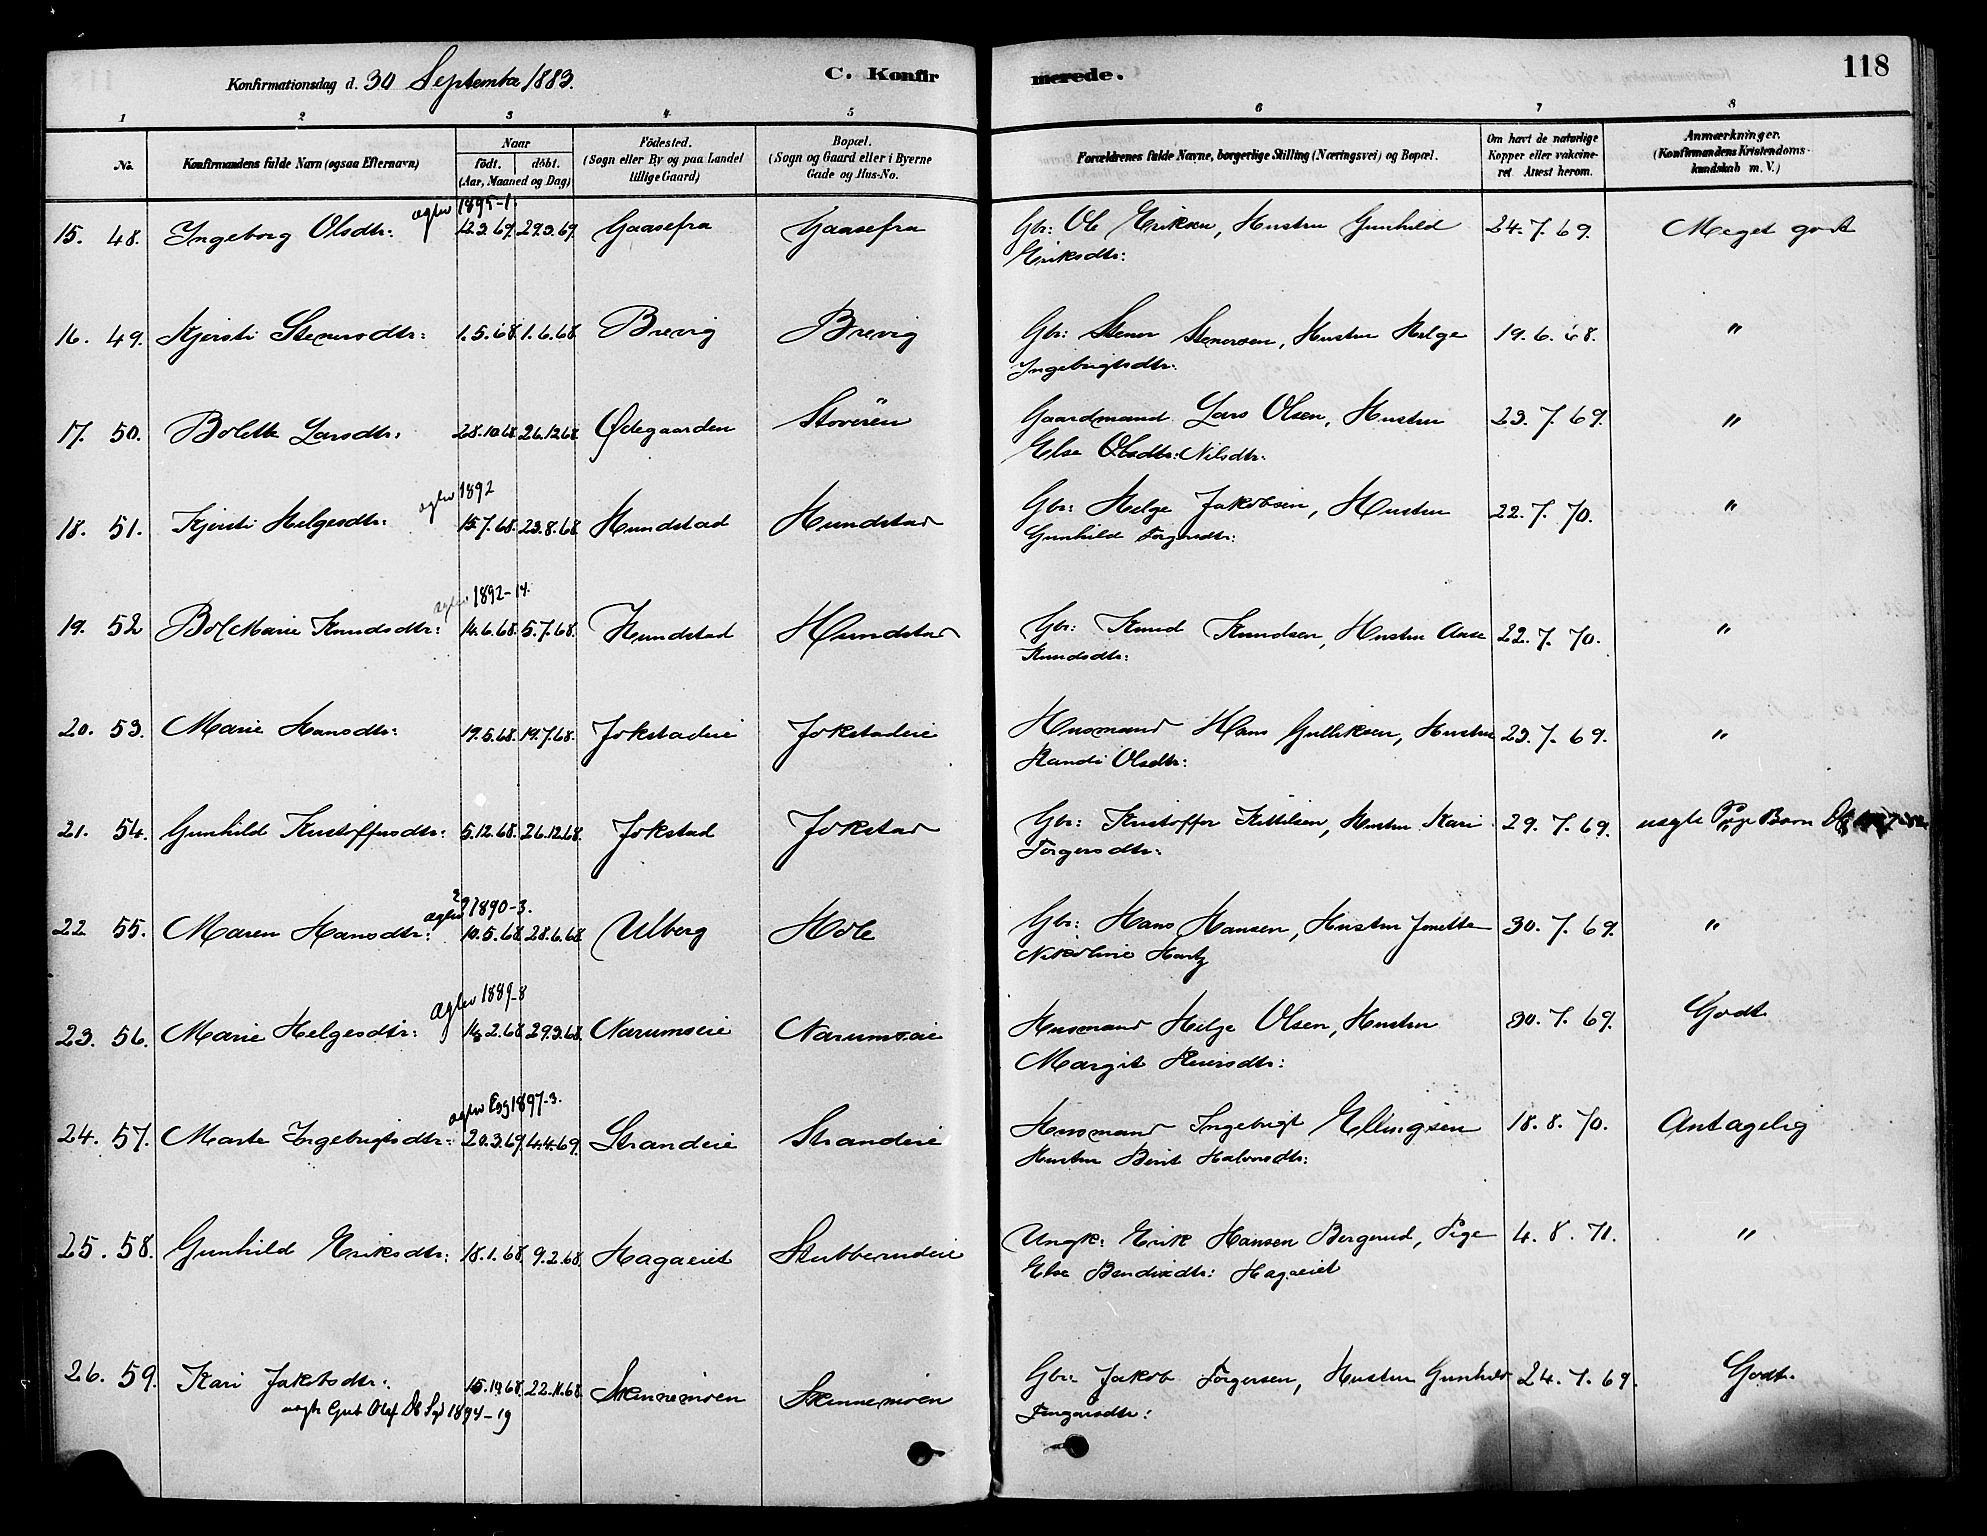 118
Konfirmationsdag d. 30 September 1883.
C. Konfirmerede.
1 2 3 4 5 6 7 8
No.
Konfirmandens fulde Navn (ogsaa Efternavn)
Naar
födt. döbt.
(Aar, Maaned og Dag)
Födested.
(Sogn eller By og paa Landet
tillige Gaard)
Bopæl.
(Sogn og Gaard eller i Byerne
Gade og Hus-No.
Forældrenes fulde Navne, borgerlige Stilling (Næringsvei) og Bopæl.
Om havt de naturlige
Kopper eller vakcine-
ret Attest herom.
Anmærkninger.
(Konfirmandens Kristendoms-
kundskab m. V.)
ægtev 1895-1.
15. 48. Ingeborg Olsdtr: 12.3.69. 29.3.69. Gaasefra Gaasefra Gbr: Ole Eriksen, Hustru Gunhild 24.7.69. Meget godt
Eriksdtr:
16. 49. Kjersti Stenersdtr: 1.5.68. 1.6.68. Brevig Brevig Gbr: Stener Stenersen, Hustru Helge 19.6.68. "
Ingebrigtsdtr:
17. 50. Bolette Larsdtr: 28.10.68. 26.12.68. Ødegaarden Storøren Gaardmand Lars Olsen, Hustru 23.7.69. "
Else Olsdtr: Nilsdtr:
ægtev 1892
18. 51. Kjersti Helgesdtr: 15.7.68. 23.8.68. Hundstad Hundstad Gbr: Helge Jakobsen, Hustru 22.7.70. "
Gunhild Torgersdtr:
ægtev 1892-14.
19. 52 Bol Marie Knudsdtr: 14.6.68. 5.7.68. Hundstad Hundstad Gbr: Knud Knudsen, Hustru Aase 22.7.70. "
Knudsdtr:
20. 53. Marie Hansdtr: 19.5.68. 19.7.68. Jokstadeie Jokstadeie Husmand Hans Gulliksen, Hustru 23.7.69. "
Randi Olsdtr:
21. 54. Gunhild Kristoffersdtr: 5.12.68. 26.12.68. Jokstad Jokstad Gbr: Kristoffer Kittilsen, Hustru Kari 29.7.69. uægte Pige Barn
Torgersdtr:
ægtev 1890-3.
22 55. Maren Hansdtr: 10.5.68. 28.6.68. Ulberg Hole Gbr: Hans Hansen, Hustru Jonette 30.7.69. "
Nikoline Hartz
ægtev 1889-8
23. 56. Marie Helgesdtr: 14.2.68. 29.3.68. Narumseie Narumseie Husmand Helge Olsen, Hustru 30.7.69. Godt.
Margit Reiersdtr:
ægtev Egg 1897-3.
24. 57. Marte Ingebrigtsdtr: 20.3.69. 4.4.69. Strandeie Strandeie Husmand Ingebrigt Ellingsen 18.8.70. Antagelig
Hustru Berit Halvorsdtr:
25. 58. Gunhild Eriksdtr: 18.1.68. 9.2.68. Hagaeiet Stubberudeie Ungk: Erik Hansen Bergerud, Pige 4.8.71. "
Else Bendixdtr: Hagaeiet
26. 59. Kari Jakobsdtr: 15.10.68. 22.11.68. Skinnemoen Skinnemoen Gbr: Jakob Torgersen, Hustru Gunhild 24.7.69. Godt.
uægte Gut Olaf 1894-19 Fingarsdtr: